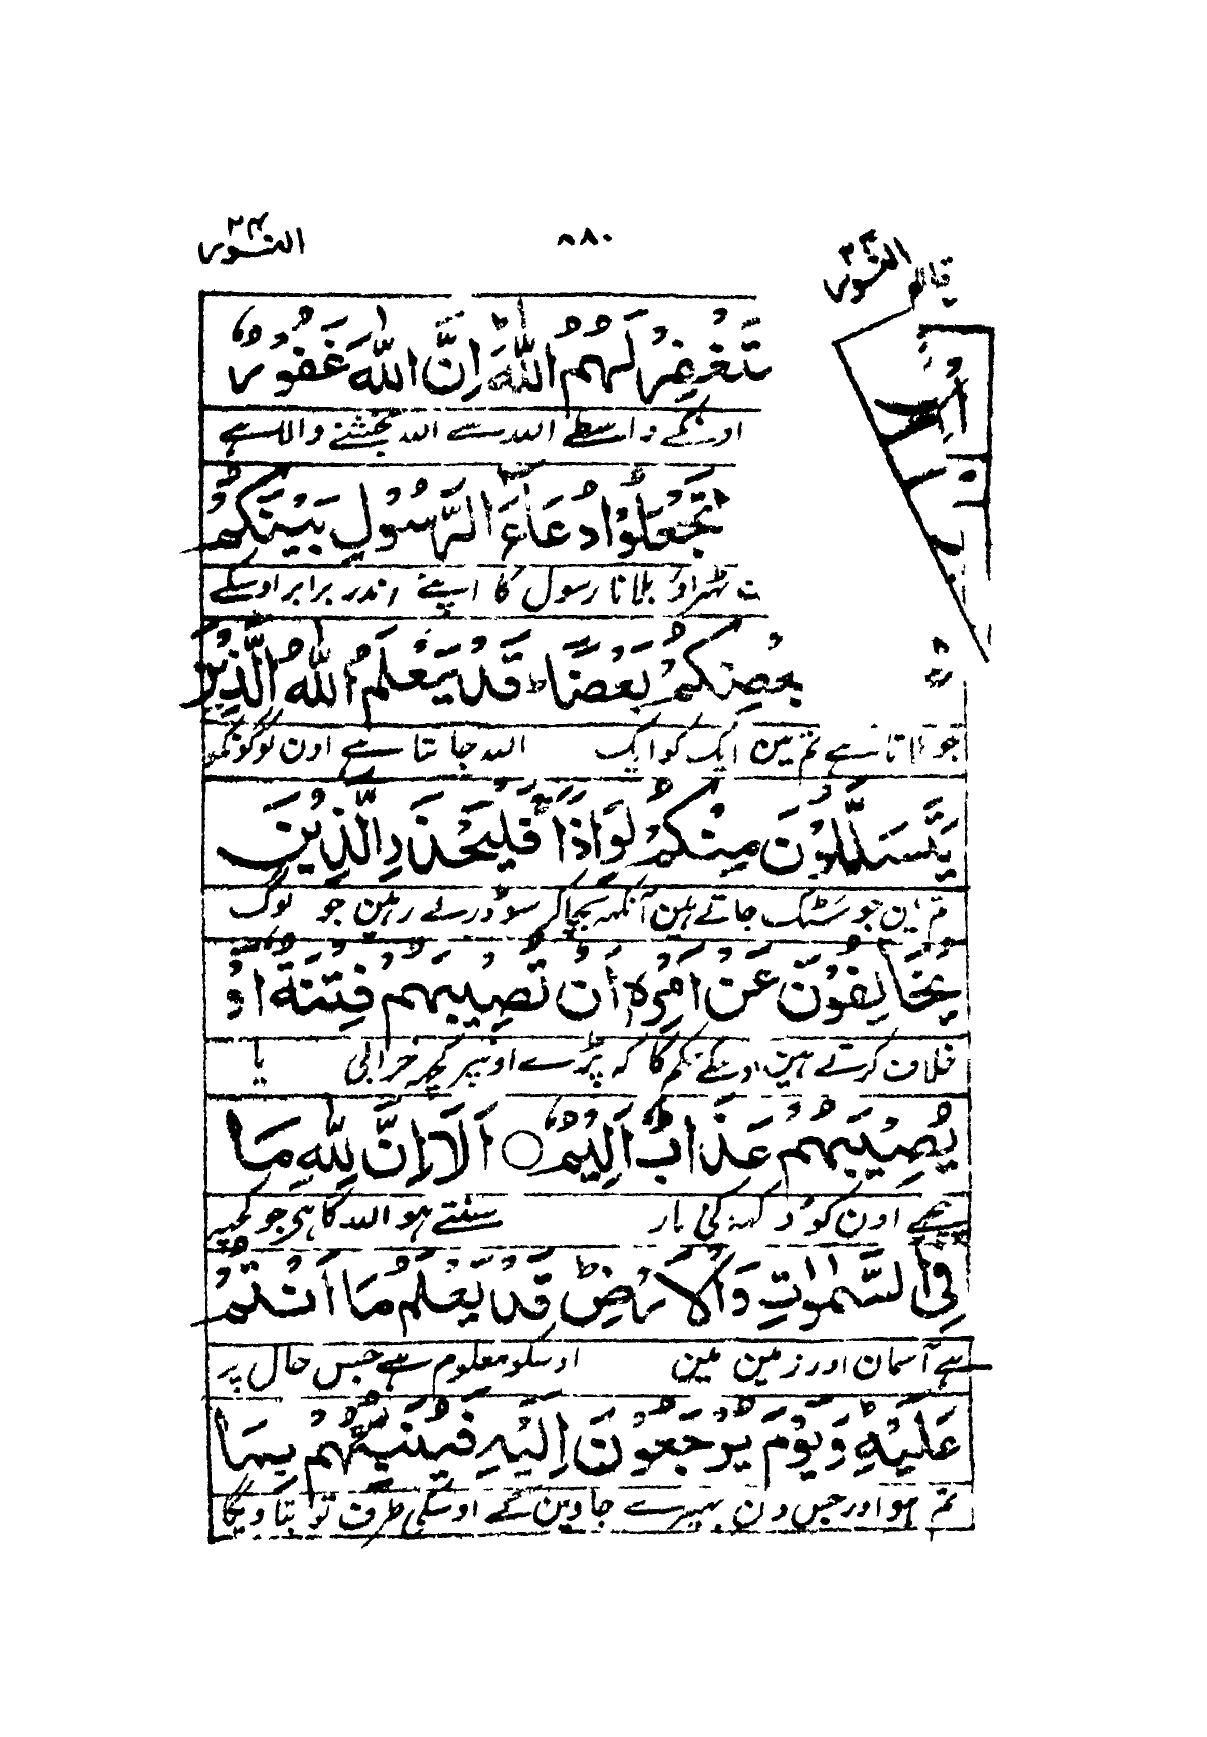 النور ٢٤ ٨٨٠ النور ٢٤
تَغْفِرْ لَهُمُ اللّٰهَ ؕ اِنَّ اللّٰهَ غَفُوْرٌ
اونکے واسطے اللہ سے اللہ بخشنے والا ہے
تَجْعَلُوْا دُعَآءَ الرَّسُوْلِ بَيْنَكُمْ
ت ٹھہراؤ بلانا رسول کا اپنے اندر برابر اوسکے
بَعْضِكُمْ بَعْضًا ؕ قَدْ يَعْلَمُ اللّٰهُ الَّذِيْنَ
جو بلاتا ہے تم مین ایک کو ایک اللہ جانتا ہے اون لوگونکو
يَتَسَلَّلُوْنَ مِنْكُمْ لِوَاذًا ۚ فَلْيَحْذَرِ الَّذِيْنَ
تم مین جو سٹک جاتے ہین آنکھ بچا کر سو ڈرتے رہین جو لوگ
يُخَالِفُوْنَ عَنْ اَمْرِهٖ اَنْ تُصِيْبَهُمْ فِتْنَةٌ اَوْ
خلاف کرتے ہین اوسکے حکم کا کہ پڑے اونپر کچھ خرابی یا
يُصِيْبَهُمْ عَذَابٌ اَلِيْمٌ ○ اَلَآ اِنَّ لِلّٰهِ مَا
پہنچے اون کو دکھ کی مار سنتے ہو اللہ کا ہی جو کچھ
فِي السَّمٰوٰتِ وَالْاَرْضِ ؕ قَدْ يَعْلَمُ مَا اَنْتُمْ
ہے آسمان اور زمین مین اوسکو معلوم ہے جس حال پر
عَلَيْهِ ؕ وَيَوْمَ يُرْجَعُوْنَ اِلَيْهِ فَيُنَبِّئُهُمْ بِمَا
تم ہو اور جس دن پھیرے جاوین گے اوسکی طرف تو بتا ویگا